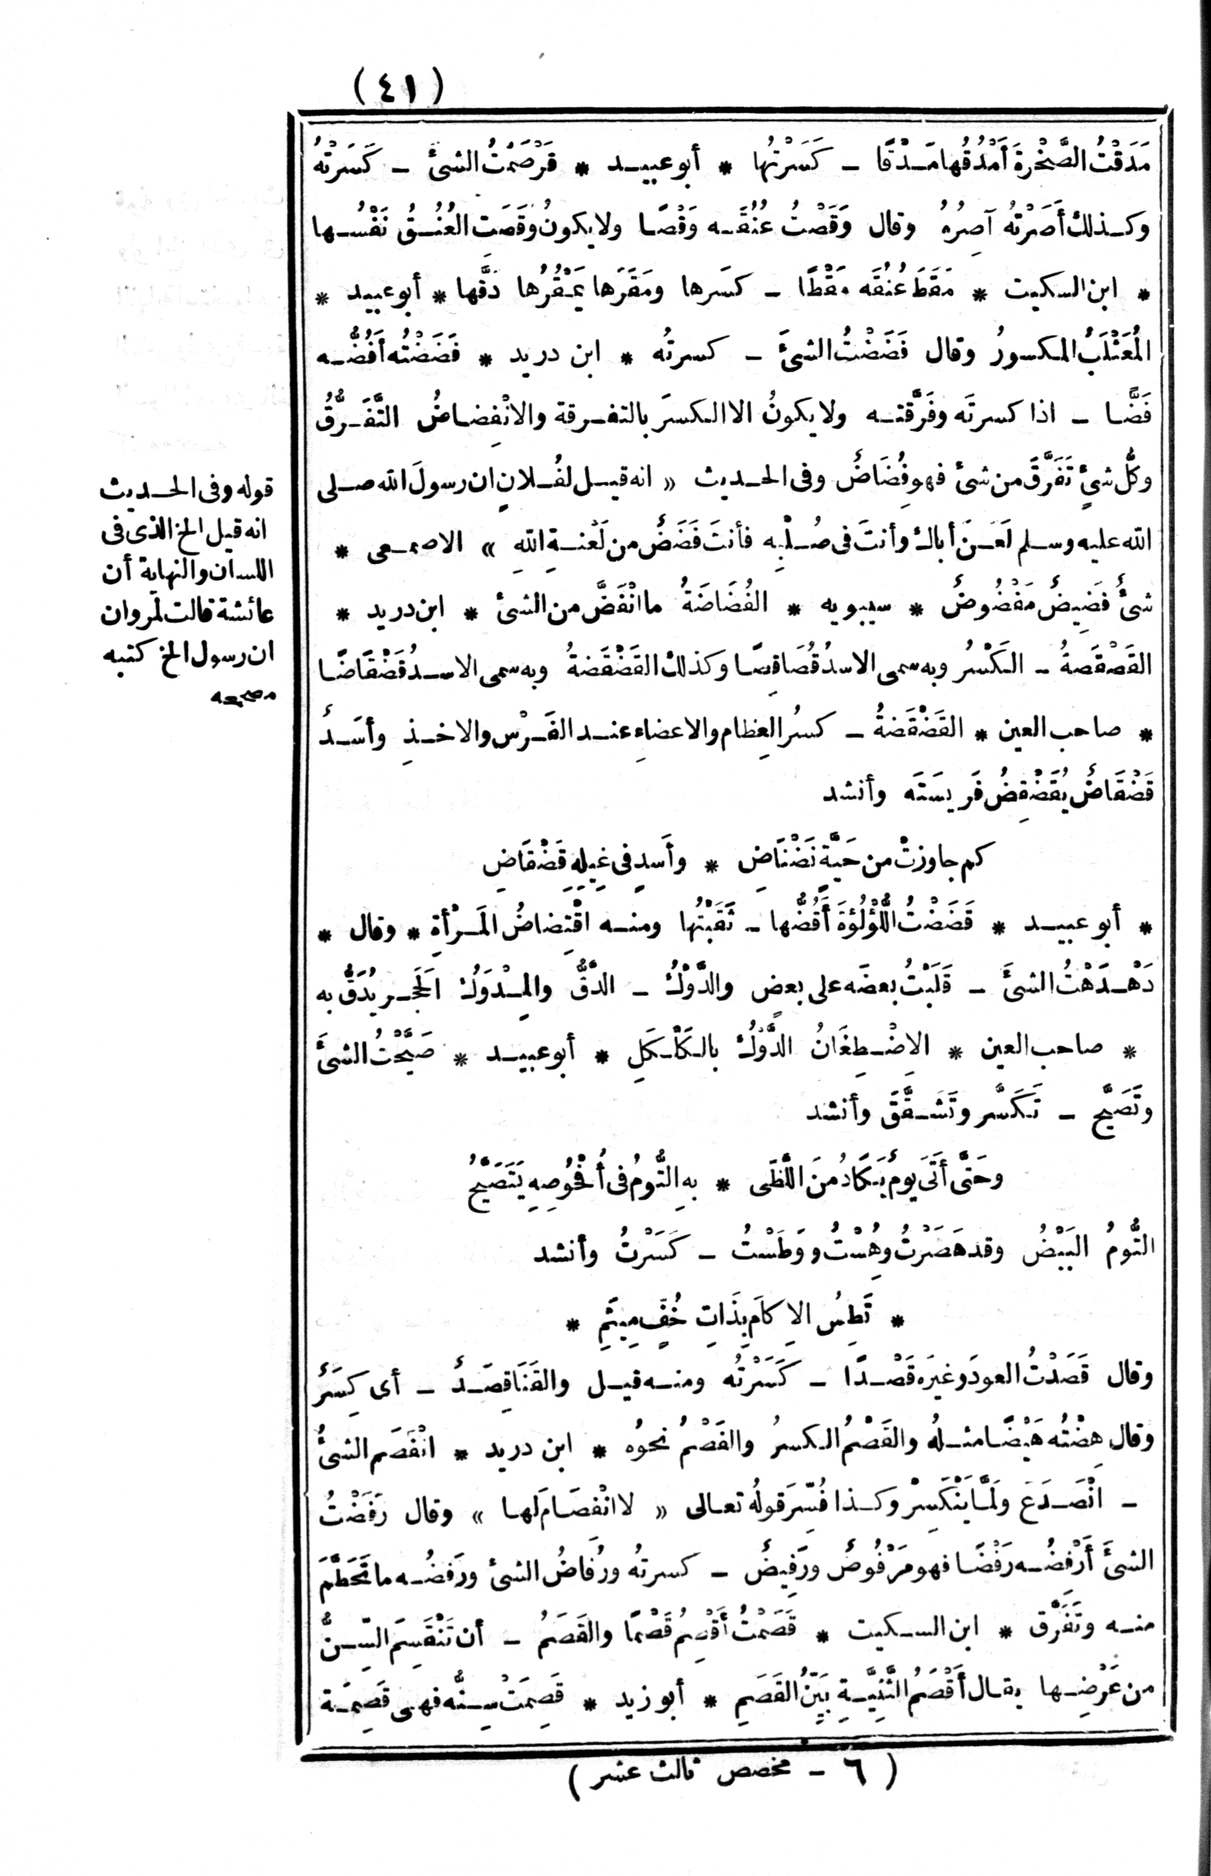 (٤١)
مَدَقْتُ الصَّخْرةَ أَمْدُقُها مَدْقًا ــ كَسَرْتُها * أبو عبيد * قَرْضَمْتُ الشئَ ــ كَسَرْتُه
وكذلك أَصَرْتُه آصِرُهُ وقال وَقَصْتُ عُنُقَه وَقْصًا ولا يكونُ وَقَصَتِ العُنُقُ نَفْسُها
* ابن السكيت * مَقَطَ عُنُقَه مَقْطًا ــ كسَرها ومَقَرَها يَمْقُرُها دَقَّها * أبو عبيد *
المُعَثْلَبُ المكسورُ وقال فَضَضْتُ الشئَ ــ كسرتُه * ابن دريد * فَضَضْتُه أَفُضُّه
فَضًّا ــ اذا كسرتَه وفَرَّقته ولا يكونُ الا الكسرَ بالتفرقة والانْفِضاضُ التَّفَرُّقُ
وكُلُّ شئٍ تَفَرَّقَ من شئ فهو فُضَاضٌ وفى الحديث « انه قيل لفُلانٍ ان رسولَ الله صلى
الله عليه وسلم لَعَنَ أباك وأنتَ فى صُلْبِه فأنتَ فَضَضٌ من لَعْنةِ اللهِ » الاصمعى *
شئٌ فَضِيضٌ مَفْضُوضٌ * سيبويه * الفُضَاضَةُ ما انْفَضَّ من الشئ * ابن دريد *
القَصْقَصةُ ــ الكَسْرُ وبه سمى الاسدُ قُصَاقِصًا وكذلك القَضْقَضةُ وبه سمى الاسدُ قَضْقَاضًا
* صاحب العين * القَضْقَضةُ ــ كسرُ العِظام والاعضاءِ عند الفَرْس والاخذِ وأسَدٌ
قَضْقَاضٌ يُقَضْقِضُ فَريسَتَه وأنشد
كم جاوزتْ من حَيَّةٍ نَضْنَاضِ * وأَسدٍ فى غِيلِهِ قَضْقَاضِ
* أبو عبيد * قَضَضْتُ اللُّؤْلُؤةَ أَقُضُّها ــ ثَقَبْتُها ومنه اقْتِضاضُ المَرْأةِ * وقال *
دَهْدَهْتُ الشئَ ــ قَلَبْتُ بعضَه على بعضٍ والدَّوْكُ ــ الدَّقُّ والمِدْوَكُ الحَجَر يُدَقُّ به
* صاحب العين * الاِضْطِغَانُ الدَّوْكُ بالكَلْكَلِ * أبو عبيد * صَيَّحْتُ الشئَ
وتَصَيَّح ــ تَكَسَّر وتَشَقَّقَ وأنشد
وحَتَّى أَتَى يومٌ يَكَادُ مِنَ اللَّظَى * بِهِ التُّومُ فى أُفْحُوصِهِ يَتَصَيَّحُ
التُّومُ البَيْضُ وقد هَصَرْتُ وهُسْتُ ووَطَسْتُ ــ كَسَرْتُ وأنشد
* تَطِسُ الاِكامَ بِذَاتِ خُفٍّ مِيثَمِ *
وقال قَصَدْتُ العودَ وغيرَه قَصْدًا ــ كَسَرْتُه ومنه قيل والقَنَا قِصَدٌ ــ أى كِسَرٌ
وقال هِضْتُه هَيْضًا مثلُه والقَصْمُ الكسرُ والفَصْمُ نحوُه * ابن دريد * انْفَصَم الشئُ
ــ انْصَدَعَ ولَمَّا يَنْكَسِرْ وكذا فُسِّرَ قولُه تعالى « لا انْفِصَامَ لها » وقال رَفَضْتُ
الشئَ أَرْفِضُه رَفْضًا فهو مَرْفُوضٌ ورَفِيضٌ ــ كسرتُه ورُفَاضُ الشئ ورَفضُه ما تَحَطَّمَ
منه وتَفَرَّق * ابن السكيت * قَصَمْتُ أقْصِمُ قَصْمًا والقَصَمُ ــ أن تَنْقَسِمَ السِّنُّ
من عَرْضِها يقال أَقْصَمُ الثَّنِيَّةِ بَيِّنُ القَصَمِ * أبو زيد * قَصِمَتْ سِنُّه فهى قَصِمَة
قوله وفى الحديث
انه قيل الخ الذى فى
اللسان والنهاية أن
عائشة قالت لمروان
ان رسول الخ كتبه
مصححه
(٦ ــ مخصص ثالث عشر)